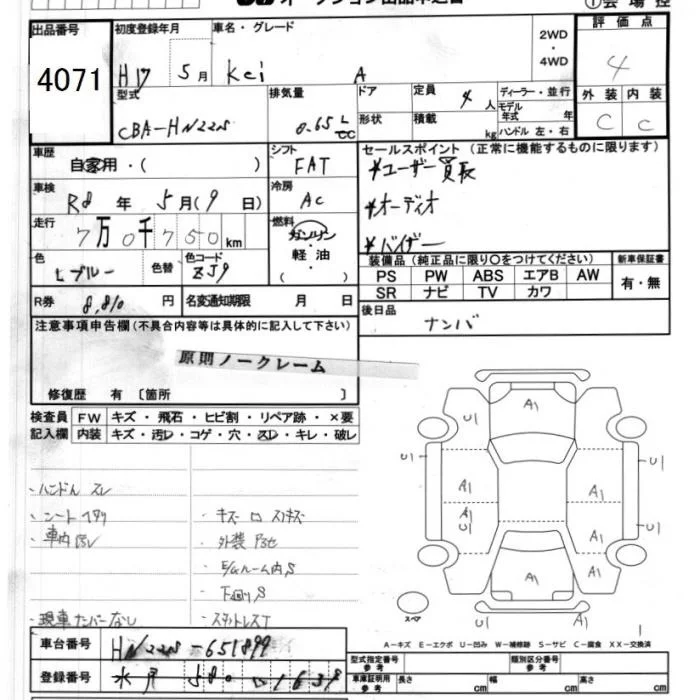 オークション出品申込書
①会場控
出品番号
4071
初度登録年月
H17 5月
車名・グレード
Kei A
2WD
・
4WD
評価点
4
外装 内装
C C
型式
CBA-HN22S
排気量
0.65 L
cc
ドア
形状
定員
4人
積載
kg
ディーラー・並行
モデル
年式 年
ハンドル 左・右
車歴
自家用・( )
シフト
FAT
セールスポイント (正常に機能するものに限ります)
*ユーザー買長
*オーディオ
*バイザー
車検
R8年 5月(9日)
冷房
AC
走行
7万0千750km
燃料
ガソリン
・
軽油
( )
色
Lブルー
色替
色コード
ZJ9
装備品 (純正品に限り〇をつけてください)
新車保証書
PS PW ABS エアB AW
SR ナビ TV カワ
有・無
R券
8,810円
名変通知期限 月 日
後日品
ナンバ
注意事項申告欄 (不具合内容等は具体的に記入して下さい)
原則ノークレーム
修復歴 有〔箇所 〕
検査員
記入欄
FW キズ・飛石・ヒビ割・リペア跡・×要
内装 キズ・汚レ・コゲ・穴・スレ・キレ・破レ
・ハンドル スレ
・シート
・車内
・現車ナンバーなし
・外装
・E/gルーム内S
・下回りS
・スタットレスT
A1
U1
U1
U1
U1
A1
A1
A1
U1
A1
U1
A1
スペア
A-キズ E-エクボ U-凹み W-補修跡 S-サビ C-腐食 XX-交換済
車台番号
HN22S-651899
登録番号
水戸 580
1639
型式指定番号
参考
類別区分番号
参考
車庫証明用
参考
長さ cm
幅 cm
高さ cm